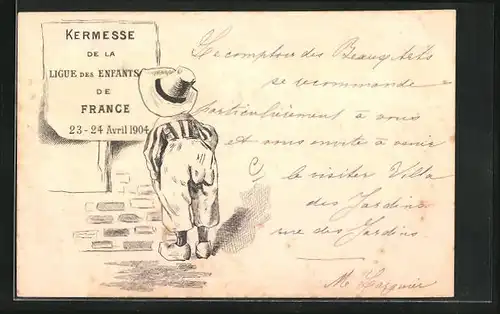 KERMESSE
DE LA
LIGUE DES ENFANTS
DE
FRANCE
23-24 Avril 1904
Le comptoir des Beaux Arts
se recommande
particulièrement à vous
et vous invite à venir
le visiter Villa
des Jardins
rue des Jardins
M